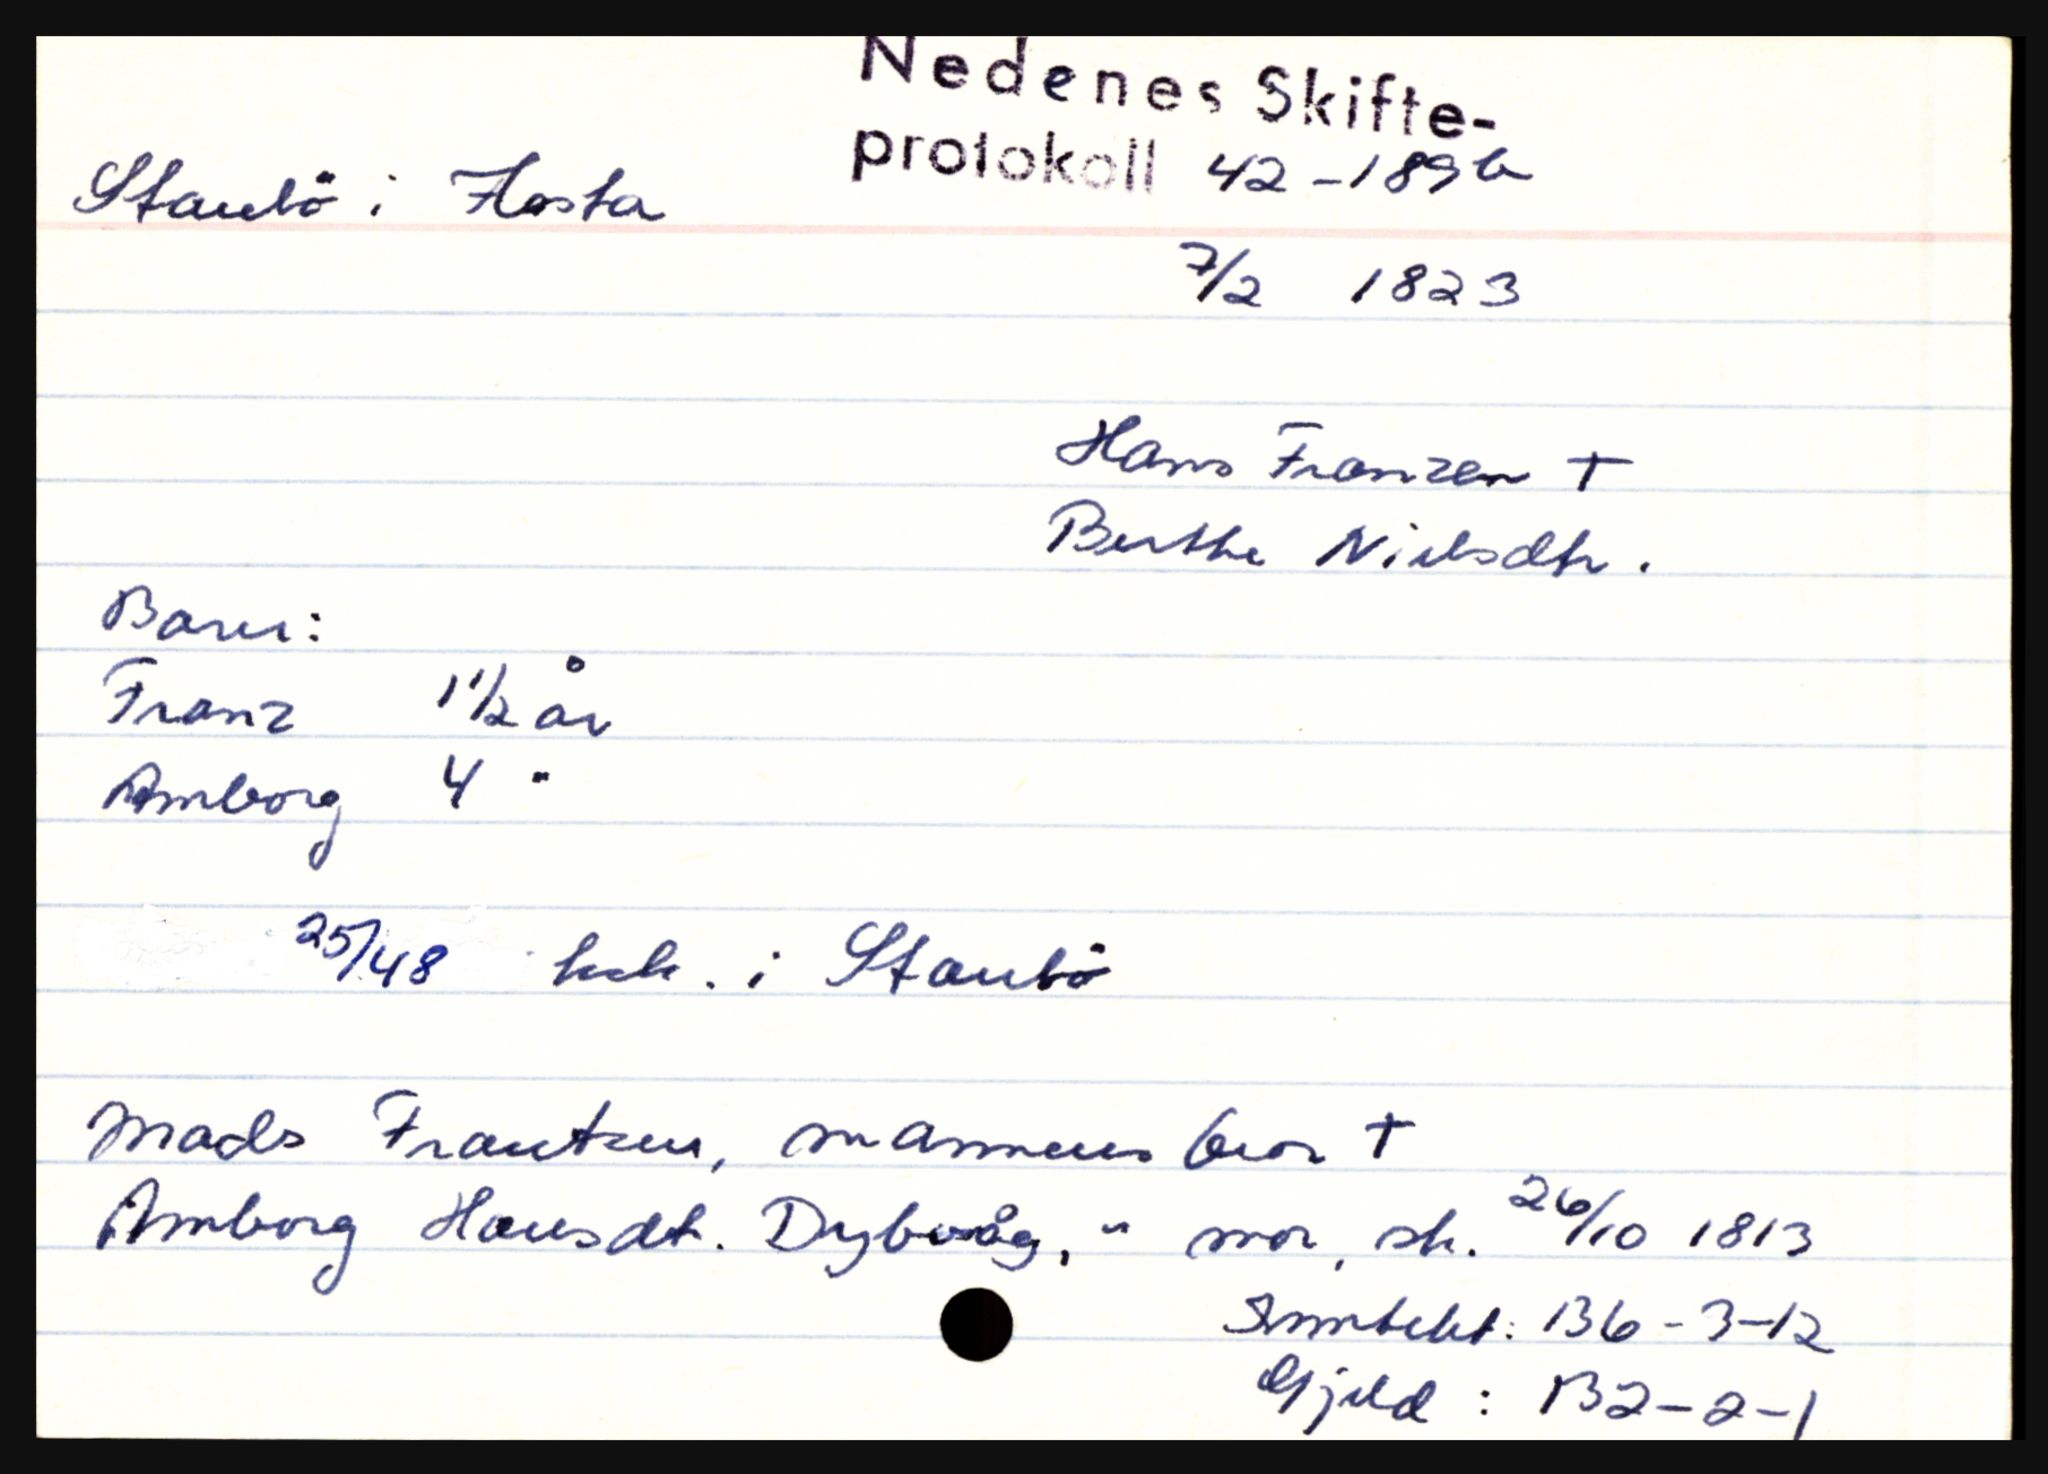 Nedenes Skifte-
protokoll 42-189b
Staubö i Flosta
7/2 1823
Hans Franzen †
Berthe Nielsdtr.
Barn:
Franz 1 1/2 år
Amborg 4 "
25/48 hrk. i Staubö
Mads Frantzen, mannens bror †
Amborg Hansdt. Dybvåg, " mor, sk. 26/10 1813
Inntekt: 136-3-12
Gjeld: 132-2-1